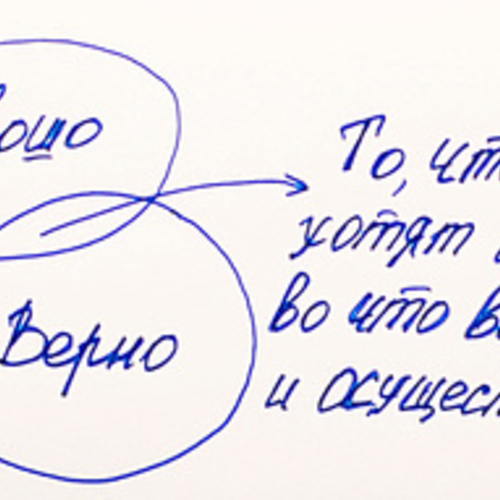 ошо
Верно
То, чт
хотят
во что в
и осущес